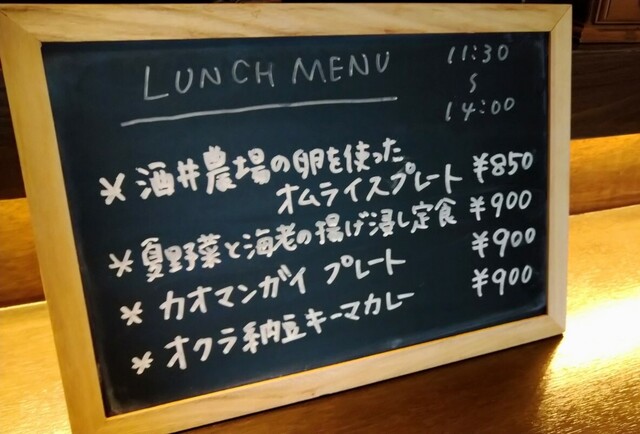 LUNCH MENU
11:30
〜
14:00
* 酒井農場の卵を使った
オムライスプレート ¥850
* 夏野菜と海老の揚げ浸し定食 ¥900
* カオマンガイ プレート ¥900
* オクラ納豆キーマカレー ¥900